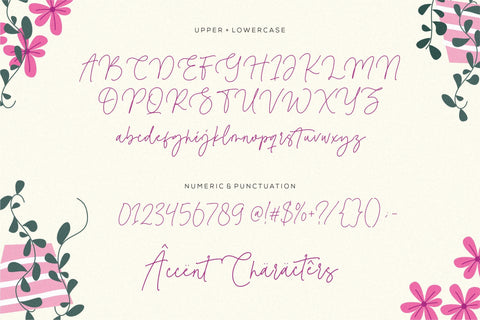 UPPER + LOWERCASE
ABCDEFGHIJKLMN
OPQRSTUVWXYZ
abcdefghijklmnopqrstuvwxyz
NUMERIC & PUNCTUATION
0123456789 @!#$%+?/{}() :-
Âccënt Charactêrs